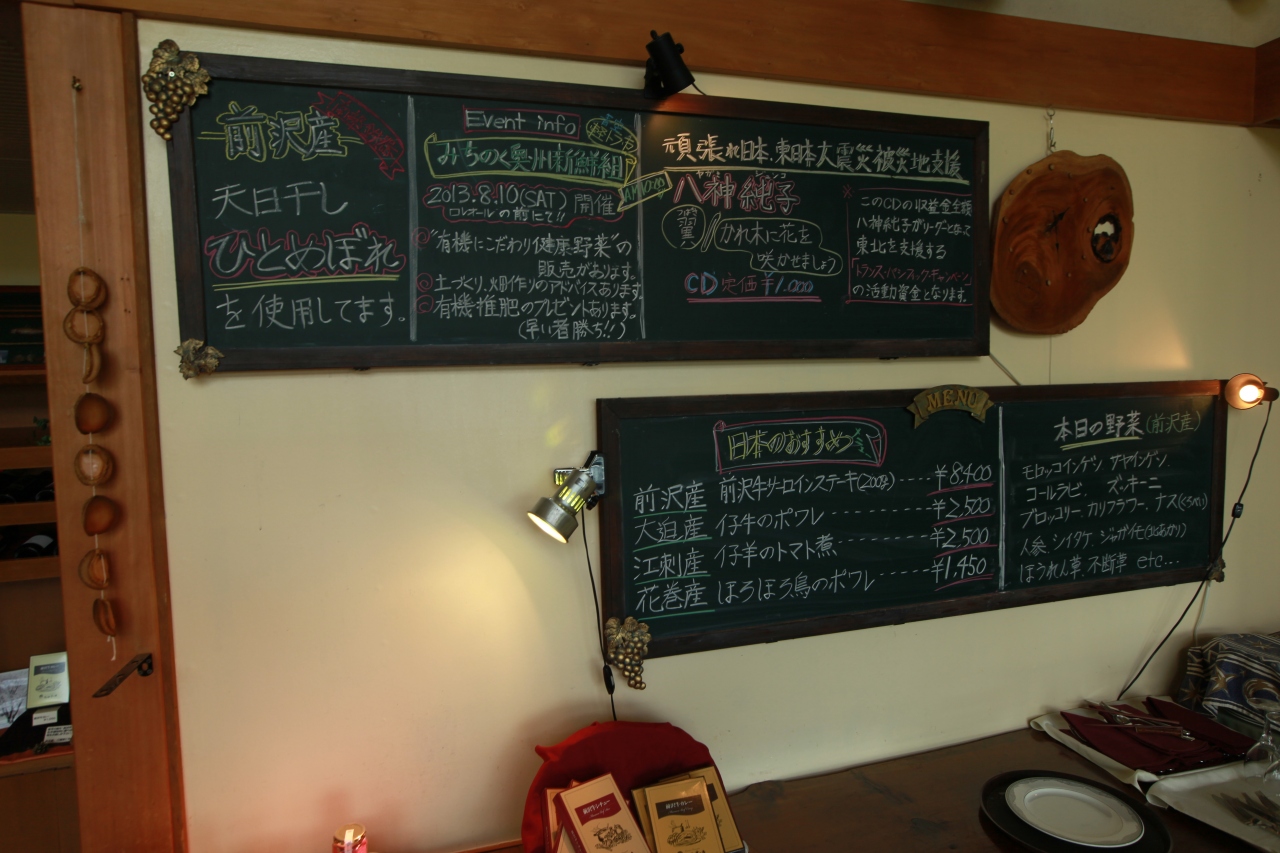 前沢産
天日干し
ひとめぼれ
を使用してます。
Event info
みちのく奥州新鮮組
2013.8.10(SAT)開催
ロレオールの前にて!!
"有機にこだわり健康野菜"の
販売があります。
土づくり、畑作りのアドバイスあります
有機堆肥のプレゼントあります。
(早い者勝ち!!)
頑張れ日本、東日本大震災被災地支援
八神純子
翼
かれ木に花を
咲かせましょう
CD 定価¥1,000
※
このCDの収益金全額
八神純子がリーダーとなって
東北を支援する
「トランス・パシフィック・キャンペーン」
の活動資金となります。
MENU
日本のおすすめ
前沢産 前沢牛サーロインステーキ(200g)----¥8,400
大迫産 仔牛のポワレ----------¥2,500
江刺産 仔羊のトマト煮---------¥2,500
花巻産 ほろほろ鳥のポワレ------¥1,450
本日の野菜(前沢産)
モロッコインゲン サヤインゲン
コールラビ、ズッキーニ
ブロッコリー、カリフラワー、ナス(くろべい)
人参、シイタケ、ジャガイモ(北あかり)
ほうれん草、不断草 etc...
前沢牛シチュー
前沢牛カレー